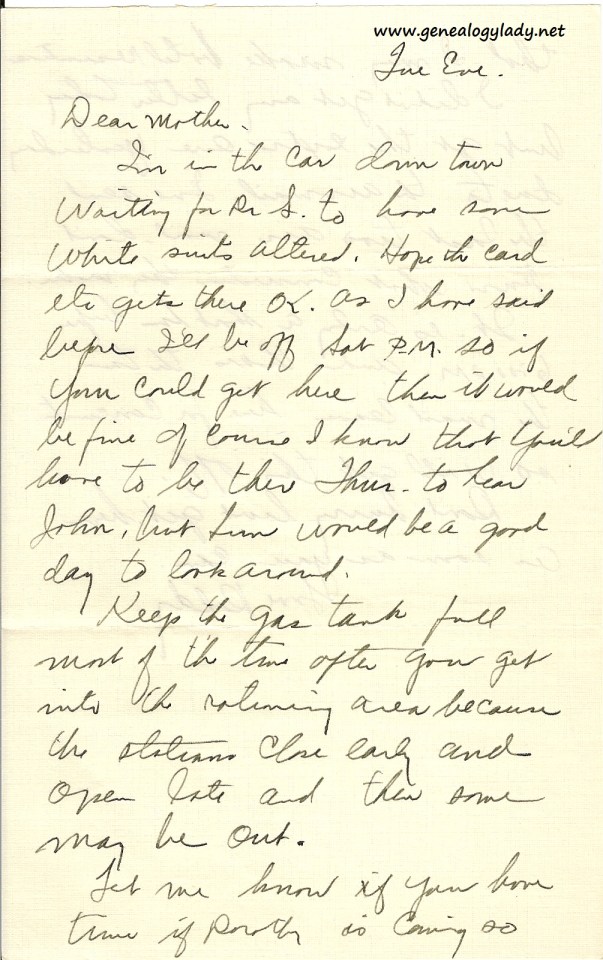 www.genealogylady.net
Tue Eve.
Dear Mother.
I'm in the car down town
Waiting for Dr S. to have some
White suits altered. Hope th card
etc gets there OK. As I have said
before I'll be off Sat P.M. so if
you could get here then it would
be fine of course I know that you'd
have to be ther Thur. to hear
John, but Sun would be a good
day to look around.
Keep the gas tank full
most of th time after you get
into th rationing area because
the stations close early and
open late and then some
may be out.
Let me know if you have
time if Dorothy is coming so